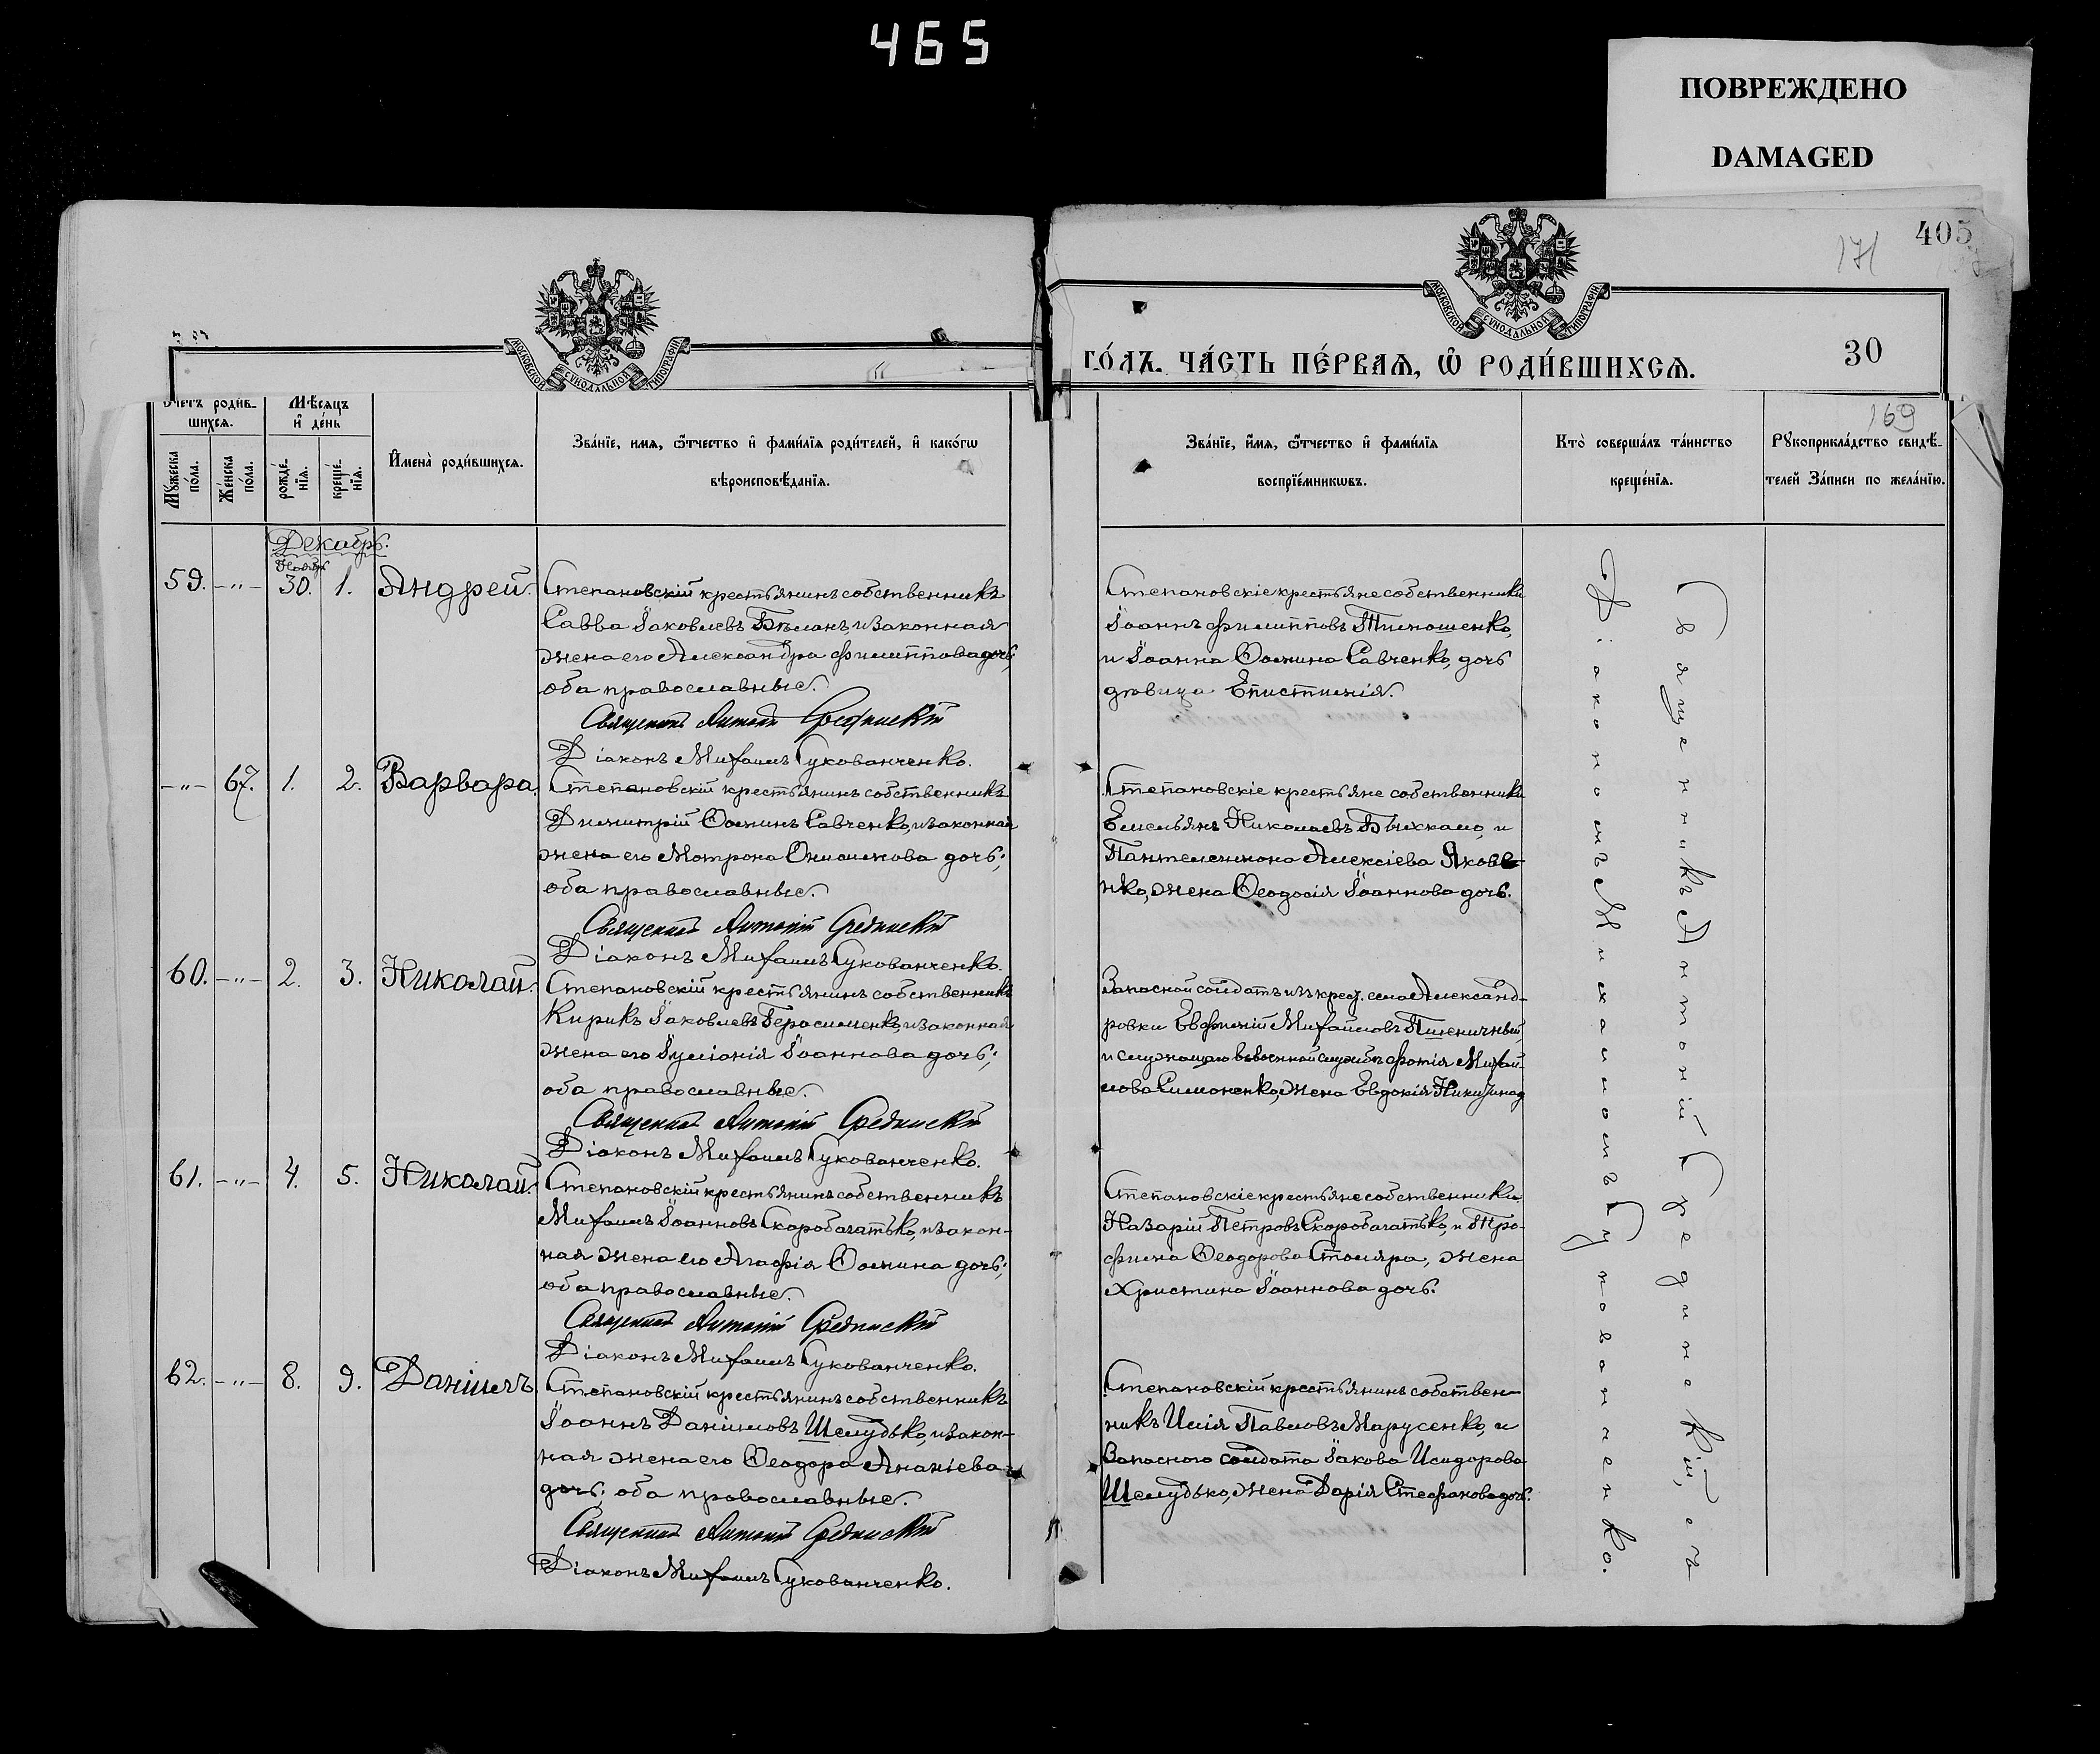 465
ПОВРЕЖДЕНО
DAMAGED
405
171
МОСКОВСКОЙ СѴНОДАЛЬНОЙ ТИПОГРАФІИ
МОСКОВСКОЙ СѴНОДАЛЬНОЙ ТИПОГРАФІИ
ГО́ДЪ. ЧА́СТЬ ПЕ́РВАѦ, Ѽ РОДИ́ВШИХСѦ.
30
169
Счетъ роди́в-
шихсѧ.
Мѣ́сѧцъ
и҆ де́нь
Мꙋ́жеска
по́ла.
Же́нска
по́ла.
рожде́-
нїѧ.
креще́-
нїѧ.
И҆мена̀ роди́вшихсѧ.
Зва́нїе, имѧ, ѻ҆́тчество и҆ фами́лїѧ роди́телей, и҆ како́гѡ
вѣроисповѣ́данїѧ.
Зва́нїе, и҆́мѧ, ѻ҆́тчество и҆ фами́лїѧ
воспрїе́мникѡвъ.
Кто̀ соверша́лъ та́инство
креще́нїѧ.
Рꙋкоприкла́дство свидѣ́-
телей За́писи по жела́нїю.
Декабрь.
Ноябрь
59. -"- 30. 1. Андрей.
Степановскій крестьянинъ собственникъ
Савва Іаковлевъ Бѣланъ, и законная
жена его Александра Филиппова дочь;
оба православные.
Священникъ Антоній Срединскій
Діаконъ Михаилъ Сукованченко.
Степановскіе крестьяне собственники
Іоаннъ Филипповъ Тимошенко,
и Іоанна Ѳомина Савченко, дочь
дѣвица Епистимія.
-"- 67. 1. 2. Варвара.
Степановскій крестьянинъ собственникъ
Димитрій Ѳоминъ Савченко, и законная
жена его Матрона Онисимова дочь;
оба православные.
Священникъ Антоній Срединскій
Діаконъ Михаилъ Сукованченко.
Степановскіе крестьяне собственники
Емельянъ Николаевъ Бычхкало, и
Пантелеимона Алексіева Яковле-
нко, жена Ѳеодосія Іоаннова дочь.
60. -"- 2. 3. Николай.
Степановскій крестьянинъ собственникъ
Кирикъ Іаковлевъ Герасименко, и законная
жена его Іуліанія Іоаннова дочь;
оба православные.
Священникъ Антоній Срединскій
Діаконъ Михаилъ Сукованченко.
Запасной солдатъ изъ крест. села Александ-
ровки Евфимій Михайловъ Пшеничный,
и служащаго въ военной службѣ Фотія Михай-
лова Симоненко, жена Евдокія
61. -"- 4. 5. Николай.
Степановскій крестьянинъ собственникъ
Михаилъ Іоанновъ Скоробагатько, и закон-
ная жена его Агафія Ѳомина дочь;
оба православные.
Священникъ Антоній Срединскій
Діаконъ Михаилъ Сукованченко.
Степановскіе крестьяне собственники
Назарій Петровъ Скоробагатько, и Тро-
фима Ѳеодорова Столяра, жена
Христина Іоаннова дочь.
62. -"- 8. 9. Даніилъ.
Степановскій крестьянинъ собственникъ
Іоаннъ Даніиловъ Шелудько, и закон-
ная жена его Ѳеодора Ананіева
дочь; оба православные.
Священникъ Антоній Срединскій
Діаконъ Михаилъ Сукованченко.
Степановскій крестьянинъ собствен-
никъ Илія Павловъ Марусенко, и
Запасного солдата Іакова Исидорова
Шелудько, жена Дарія Стефанова дочь.
Священникъ Антоній Срединскій, съ
Діакономъ Михаиломъ Сукованченко.